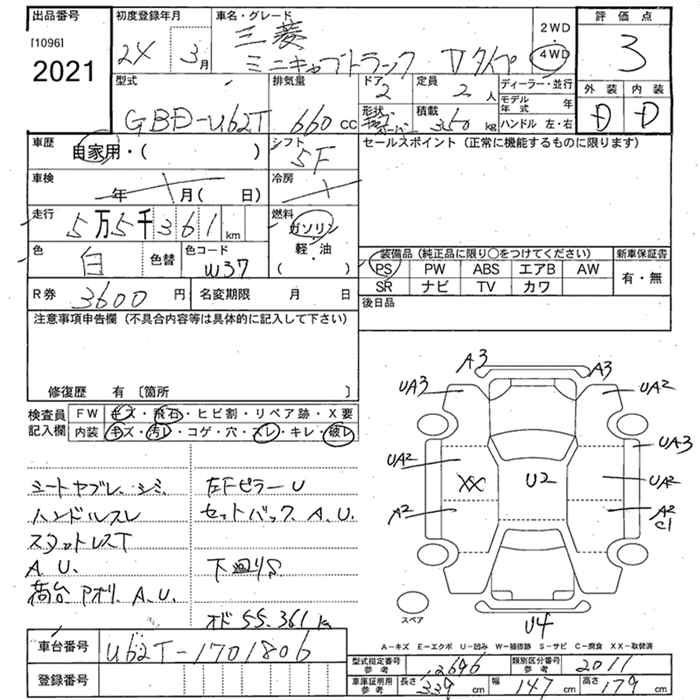 出品番号
[1096]
2021
初度登録年月
24 3月
車名・グレード
三菱
ミニキャブトラック Vタイプ
2WD
4WD
評価点
3
外装 内装
D D
型式
GBD-U62T
排気量
660cc
ドア
2
定員
2人
ディーラー・並行
モデル年式 年
ハンドル 左・右
形状
積載
350kg
車歴
自家用・( )
シフト
5F
車検
年 月( 日)
冷房
走行
5万5千361km
燃料
ガソリン
軽・油
( )
色
白
色替
色コード
W37
R券 3600円
名変期限 月 日
セールスポイント (正常に機能するものに限ります)
装備品 (純正品に限り○をつけてください)
新車保証書
PS PW ABS エアB AW
SR ナビ TV カワ
有・無
後日品
注意事項申告欄 (不具合内容等は具体的に記入して下さい)
修復歴 有 〔箇所 〕
検査員記入欄
FW キズ・飛石・ヒビ割・リペア跡・X要
内装 キズ・汚レ・コゲ・穴・スレ・キレ・破レ
シートヤブレ、シミ、
ハンドルスレ
スタットレスT
A.U.
荷台、アオリ、A.U.
左Fピラー U
セットバック A.U.
下廻りS
オド 55.361k
A3 A3
UA3 UA2
UA2 UA3
XX U2 UA2
A2 A2
C1
スペア
U4
A-キズ E-エクボ U-凹み W-補修跡 S-サビ C-腐食 XX-取替済
車台番号 U62T-1701806
登録番号
型式指定番号 参考 12696
類別区分番号 参考 2011
車庫証明用 参考 長さ 339cm 幅 147cm 高さ 179cm